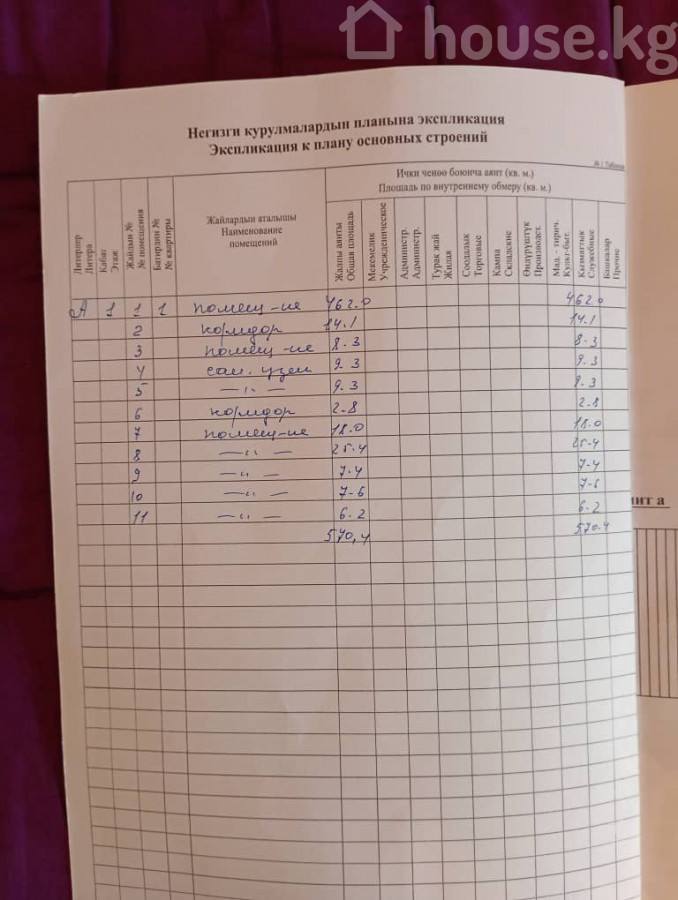 house.kg
Негизги курулмалардын планына экспликация
Экспликация к плану основных строений
№ 1 Таблица
Литерлер Литера
Кабат Этаж
Жайдын № № помещения
Батирдин № № квартиры
Жайлардын аталышы
Наименование
помещений
Ички ченөө боюнча аянт (кв. м.)
Площадь по внутреннему обмеру (кв. м.)
Жалпы аянты Общая площадь
Мекемелик Учрежденческое
Администр. Администр.
Турак жай Жилая
Соодалык Торговые
Кампа Складские
Өндүрүштүк Производст.
Мад. - тирич. Культ-быт.
Кызматтык Служебные
Башкалар Прочие
А 1 1 1 помещ-ие 462.0 462.0
2 коридор 14.1 14.1
3 помещ-ие 8.3 8.3
4 сан. узел 9.3 9.3
5 —〃— 9.3 9.3
6 коридор 2.8 2.8
7 помещ-ие 18.0 18.0
8 —〃— 25.4 25.4
9 —〃— 7.4 7.4
10 —〃— 7.6 7.6
11 —〃— 6.2 6.2
570,4 570.4